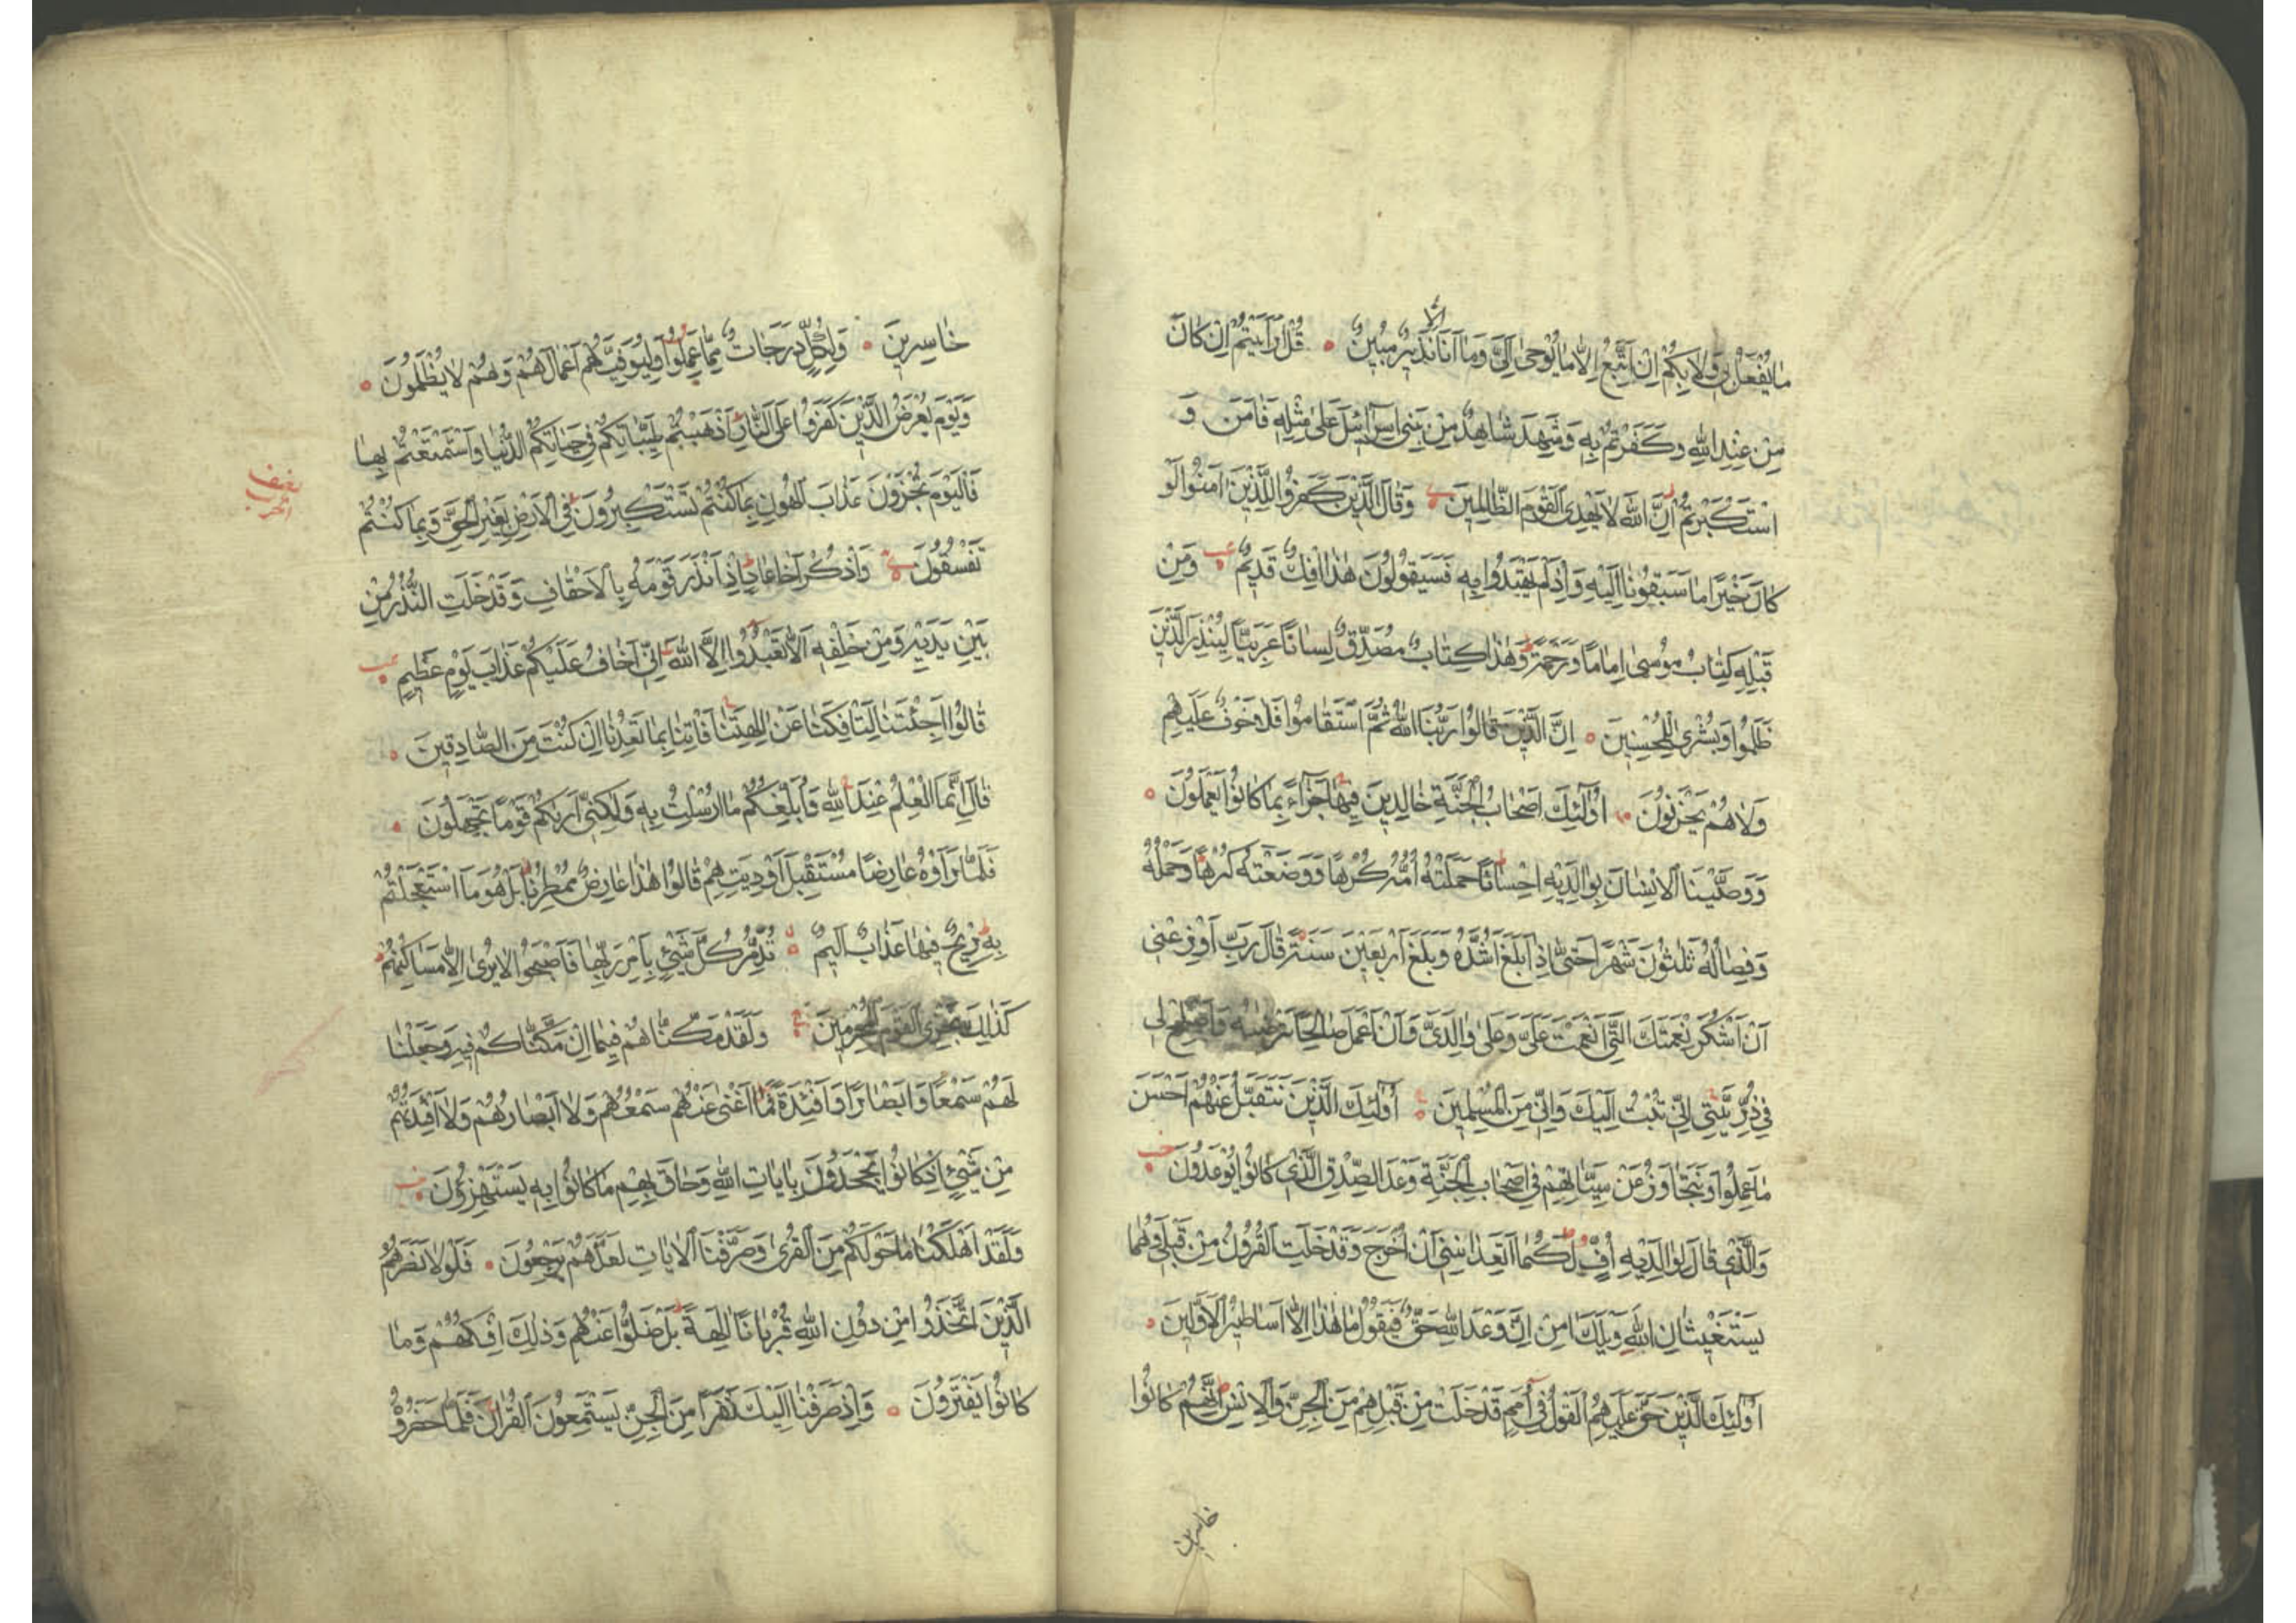 مَا يُفْعَلُ بِي وَلَا بِكُمْ اِنْ اَتَّبِعُ اِلَّا مَا يُوحٰى اِلَيَّ وَمَا اَنَا اِلَّا نَذِيرٌ مُبِينٌ ۝ قُلْ اَرَاَيْتُمْ اِنْ كَانَ
مِنْ عِنْدِ اللّٰهِ وَكَفَرْتُمْ بِهِ وَشَهِدَ شَاهِدٌ مِنْ بَنِي اِسْرَائِلَ عَلٰى مِثْلِهِ فَاٰمَنَ وَ
اسْتَكْبَرْتُمْ اِنَّ اللّٰهَ لَا يَهْدِي الْقَوْمَ الظَّالِمِينَ ۝ وَقَالَ الَّذِينَ كَفَرُوا لِلَّذِينَ اٰمَنُوا لَوْ
كَانَ خَيْرًا مَا سَبَقُونَا اِلَيْهِ وَاِذْ لَمْ يَهْتَدُوا بِهِ فَسَيَقُولُونَ هٰذَا اِفْكٌ قَدِيمٌ ۝ وَمِنْ
قَبْلِهِ كِتَابُ مُوسٰى اِمَامًا وَرَحْمَةً وَهٰذَا كِتَابٌ مُصَدِّقٌ لِسَانًا عَرَبِيًّا لِيُنْذِرَ الَّذِينَ
ظَلَمُوا وَبُشْرٰى لِلْمُحْسِنِينَ ۝ اِنَّ الَّذِينَ قَالُوا رَبُّنَا اللّٰهُ ثُمَّ اسْتَقَامُوا فَلَا خَوْفٌ عَلَيْهِمْ
وَلَا هُمْ يَحْزَنُونَ ۝ اُولٰئِكَ اَصْحَابُ الْجَنَّةِ خَالِدِينَ فِيهَا جَزَاءً بِمَا كَانُوا يَعْمَلُونَ ۝
وَوَصَّيْنَا الْاِنْسَانَ بِوَالِدَيْهِ اِحْسَانًا حَمَلَتْهُ اُمُّهُ كُرْهًا وَوَضَعَتْهُ كُرْهًا وَحَمْلُهُ
وَفِصَالُهُ ثَلٰثُونَ شَهْرًا حَتّٰى اِذَا بَلَغَ اَشُدَّهُ وَبَلَغَ اَرْبَعِينَ سَنَةً قَالَ رَبِّ اَوْزِعْنِي
اَنْ اَشْكُرَ نِعْمَتَكَ الَّتِي اَنْعَمْتَ عَلَيَّ وَعَلٰى وَالِدَيَّ وَاَنْ اَعْمَلَ صَالِحًا تَرْضٰيهُ وَاَصْلِحْ لِي
فِي ذُرِّيَّتِي اِنِّي تُبْتُ اِلَيْكَ وَاِنِّي مِنَ الْمُسْلِمِينَ ۝ اُولٰئِكَ الَّذِينَ نَتَقَبَّلُ عَنْهُمْ اَحْسَنَ
مَا عَمِلُوا وَنَتَجَاوَزُ عَنْ سَيِّاٰتِهِمْ فِي اَصْحَابِ الْجَنَّةِ وَعْدَ الصِّدْقِ الَّذِي كَانُوا يُوعَدُونَ
وَالَّذِي قَالَ لِوَالِدَيْهِ اُفٍّ لَكُمَا اَتَعِدَانِنِي اَنْ اُخْرَجَ وَقَدْ خَلَتِ الْقُرُونُ مِنْ قَبْلِي وَهُمَا
يَسْتَغِيثَانِ اللّٰهَ وَيْلَكَ اٰمِنْ اِنَّ وَعْدَ اللّٰهِ حَقٌّ فَيَقُولُ مَا هٰذَا اِلَّا اَسَاطِيرُ الْاَوَّلِينَ ۝
اُولٰئِكَ الَّذِينَ حَقَّ عَلَيْهِمُ الْقَوْلُ فِي اُمَمٍ قَدْ خَلَتْ مِنْ قَبْلِهِمْ مِنَ الْجِنِّ وَالْاِنْسِ اِنَّهُمْ كَانُوا
خاسرين
خَاسِرِينَ ۝ وَلِكُلٍّ دَرَجَاتٌ مِمَّا عَمِلُوا وَلِيُوَفِّيَهُمْ اَعْمَالَهُمْ وَهُمْ لَا يُظْلَمُونَ ۝
وَيَوْمَ يُعْرَضُ الَّذِينَ كَفَرُوا عَلَى النَّارِ اَذْهَبْتُمْ طَيِّبَاتِكُمْ فِي حَيَاتِكُمُ الدُّنْيَا وَاسْتَمْتَعْتُمْ بِهَا
فَالْيَوْمَ تُجْزَوْنَ عَذَابَ الْهُونِ بِمَا كُنْتُمْ تَسْتَكْبِرُونَ فِي الْاَرْضِ بِغَيْرِ الْحَقِّ وَبِمَا كُنْتُمْ
نصف الحزب
تَفْسُقُونَ ۝ وَاذْكُرْ اَخَا عَادٍ اِذْ اَنْذَرَ قَوْمَهُ بِالْاَحْقَافِ وَقَدْ خَلَتِ النُّذُرُ مِنْ
بَيْنِ يَدَيْهِ وَمِنْ خَلْفِهِ اَلَّا تَعْبُدُوا اِلَّا اللّٰهَ اِنِّي اَخَافُ عَلَيْكُمْ عَذَابَ يَوْمٍ عَظِيمٍ
قَالُوا اَجِئْتَنَا لِتَاْفِكَنَا عَنْ اٰلِهَتِنَا فَاْتِنَا بِمَا تَعِدُنَا اِنْ كُنْتَ مِنَ الصَّادِقِينَ ۝
قَالَ اِنَّمَا الْعِلْمُ عِنْدَ اللّٰهِ وَاُبَلِّغُكُمْ مَا اُرْسِلْتُ بِهِ وَلٰكِنِّي اَرٰيكُمْ قَوْمًا تَجْهَلُونَ ۝
فَلَمَّا رَاَوْهُ عَارِضًا مُسْتَقْبِلَ اَوْدِيَتِهِمْ قَالُوا هٰذَا عَارِضٌ مُمْطِرُنَا بَلْ هُوَ مَا اسْتَعْجَلْتُمْ
بِهِ رِيحٌ فِيهَا عَذَابٌ اَلِيمٌ ۝ تُدَمِّرُ كُلَّ شَيْئٍ بِاَمْرِ رَبِّهَا فَاَصْبَحُوا لَا يُرٰى اِلَّا مَسَاكِنُهُمْ
كَذٰلِكَ نَجْزِي الْقَوْمَ الْمُجْرِمِينَ ۝ وَلَقَدْ مَكَّنَّاهُمْ فِيمَا اِنْ مَكَّنَّاكُمْ فِيهِ وَجَعَلْنَا
لَهُمْ سَمْعًا وَاَبْصَارًا وَاَفْئِدَةً فَمَا اَغْنٰى عَنْهُمْ سَمْعُهُمْ وَلَا اَبْصَارُهُمْ وَلَا اَفْئِدَتُهُمْ
مِنْ شَيْئٍ اِذْ كَانُوا يَجْحَدُونَ بِاٰيَاتِ اللّٰهِ وَحَاقَ بِهِمْ مَا كَانُوا بِهِ يَسْتَهْزِؤُنَ
وَلَقَدْ اَهْلَكْنَا مَا حَوْلَكُمْ مِنَ الْقُرٰى وَصَرَّفْنَا الْاٰيَاتِ لَعَلَّهُمْ يَرْجِعُونَ ۝ فَلَوْلَا نَصَرَهُمُ
الَّذِينَ اتَّخَذُوا مِنْ دُونِ اللّٰهِ قُرْبَانًا اٰلِهَةً بَلْ ضَلُّوا عَنْهُمْ وَذٰلِكَ اِفْكُهُمْ وَمَا
كَانُوا يَفْتَرُونَ ۝ وَاِذْ صَرَفْنَا اِلَيْكَ نَفَرًا مِنَ الْجِنِّ يَسْتَمِعُونَ الْقُرْاٰنَ فَلَمَّا حَضَرُوهُ